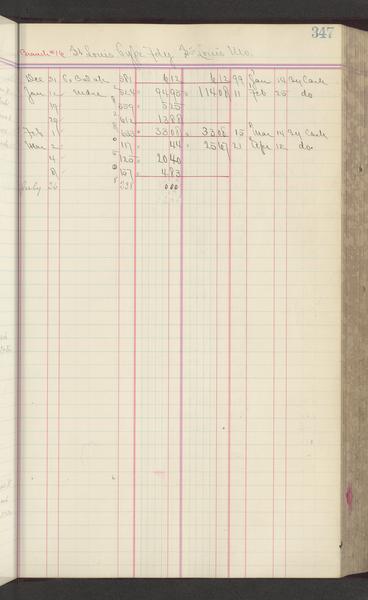 347
Branch #16 St Louis Type Fdy St Louis Mo.
Dec 31 581 6 12 6 12 99 Jan 14 By Cash
Jan 12 Mdse 524 94 95 114 08 11 Feb 25 do
19 559 5 25
29 612 13 88
Feb 1 633 33 08 33 08 15 Mar 14 By Cash
Mar 2 117 44 25 67 21 Apr 12 do
4 125 20 40
8 157 4 83
July 26